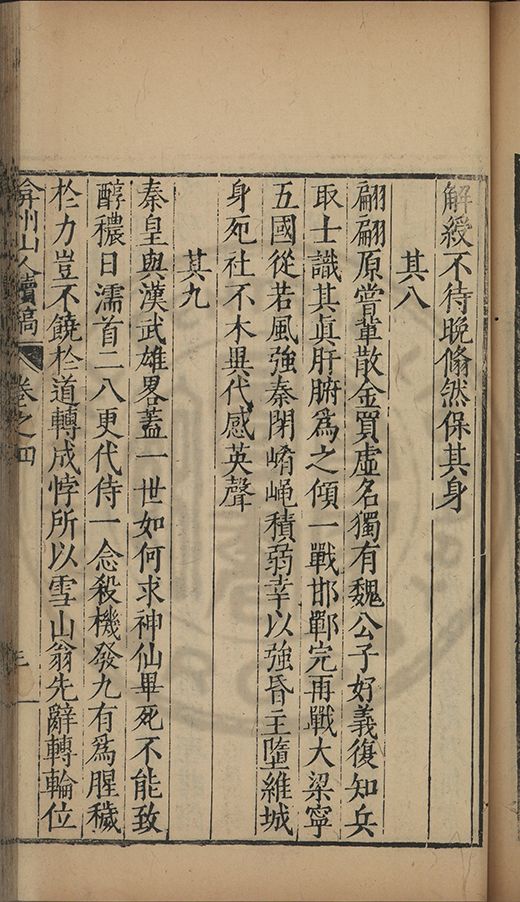 解綬不待晚翛然保其身
其八
翩翩原嘗輩散金買虛名獨有魏公子好義復知兵
取士識其眞肝腑爲之傾一戰邯鄲完再戰大梁寧
五國從若風強秦閉崤黽積弱幸以強昏王墮維城
身死社不木異代感英聲
其九
秦皇與漢武雄畧蓋一世如何求神仙畢死不能致
醇穠日濡首二八更代侍一念殺機發九有爲腥穢
於力豈不饒於道轉成悖所以雪山翁先辭轉輪位
弇州山人續稿 卷之四